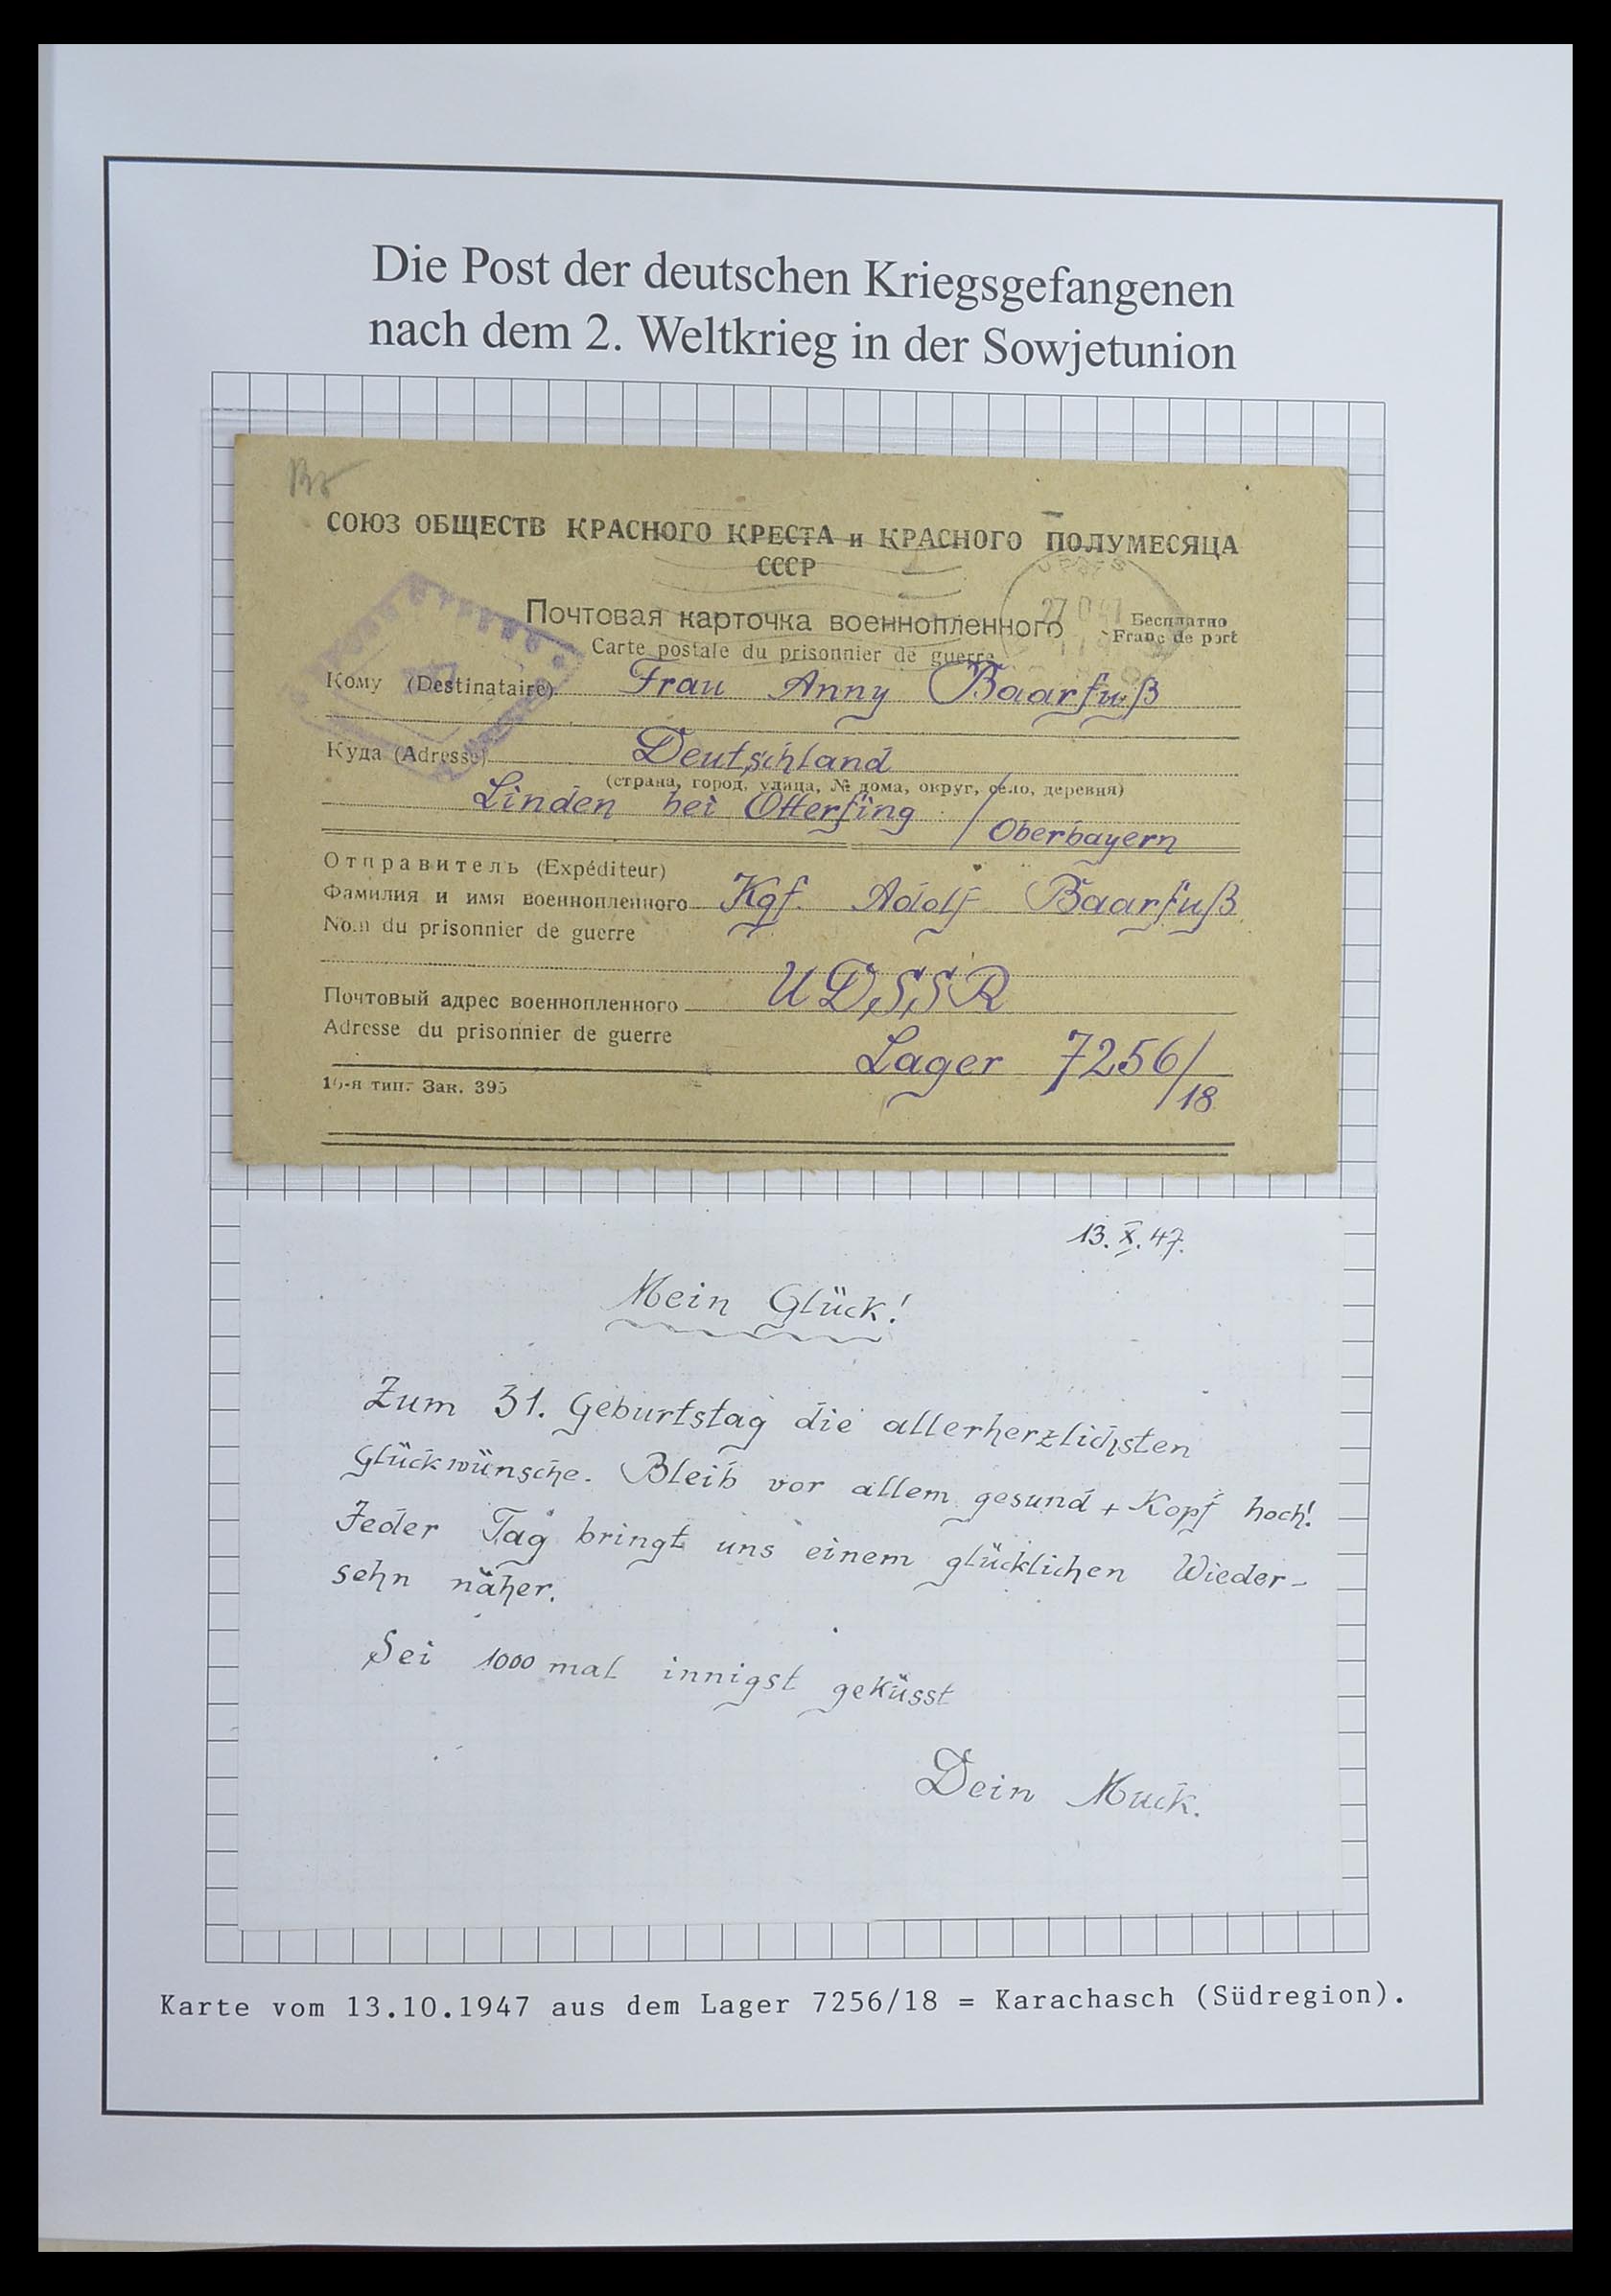 Die Post der deutschen Kriegsgefangenen
nach dem 2. Weltkrieg in der Sowjetunion
СОЮЗ ОБЩЕСТВ КРАСНОГО КРЕСТА и КРАСНОГО ПОЛУМЕСЯЦА
СССР
Почтовая карточка военнопленного
Бесплатно
Carte postale du prisonnier de guerre
Franc de port
Кому (Destinataire) Frau Anny Baarfuß
Куда (Adresse) Deutschland
(страна, город, улица, № дома, округ, село, деревня)
Linden bei Otterfing / Oberbayern
Отправитель (Expéditeur)
Фамилия и имя военнопленного Kgf. Adolf Baarfuß
Nom du prisonnier de guerre
UDSSR
Почтовый адрес военнопленного
Adresse du prisonnier de guerre
Lager 7256/18
16-я тип. Зак. 395
13. X. 47.
Mein Glück!
Zum 31. Geburtstag die allerherzlichsten
Glückwünsche. Bleib vor allem gesund + Kopf hoch!
Jeder Tag bringt uns einem glücklichen Wieder-
sehn näher.
Sei 1000 mal innigst geküsst
Dein Muck.
Karte vom 13.10.1947 aus dem Lager 7256/18 = Karachasch (Südregion).